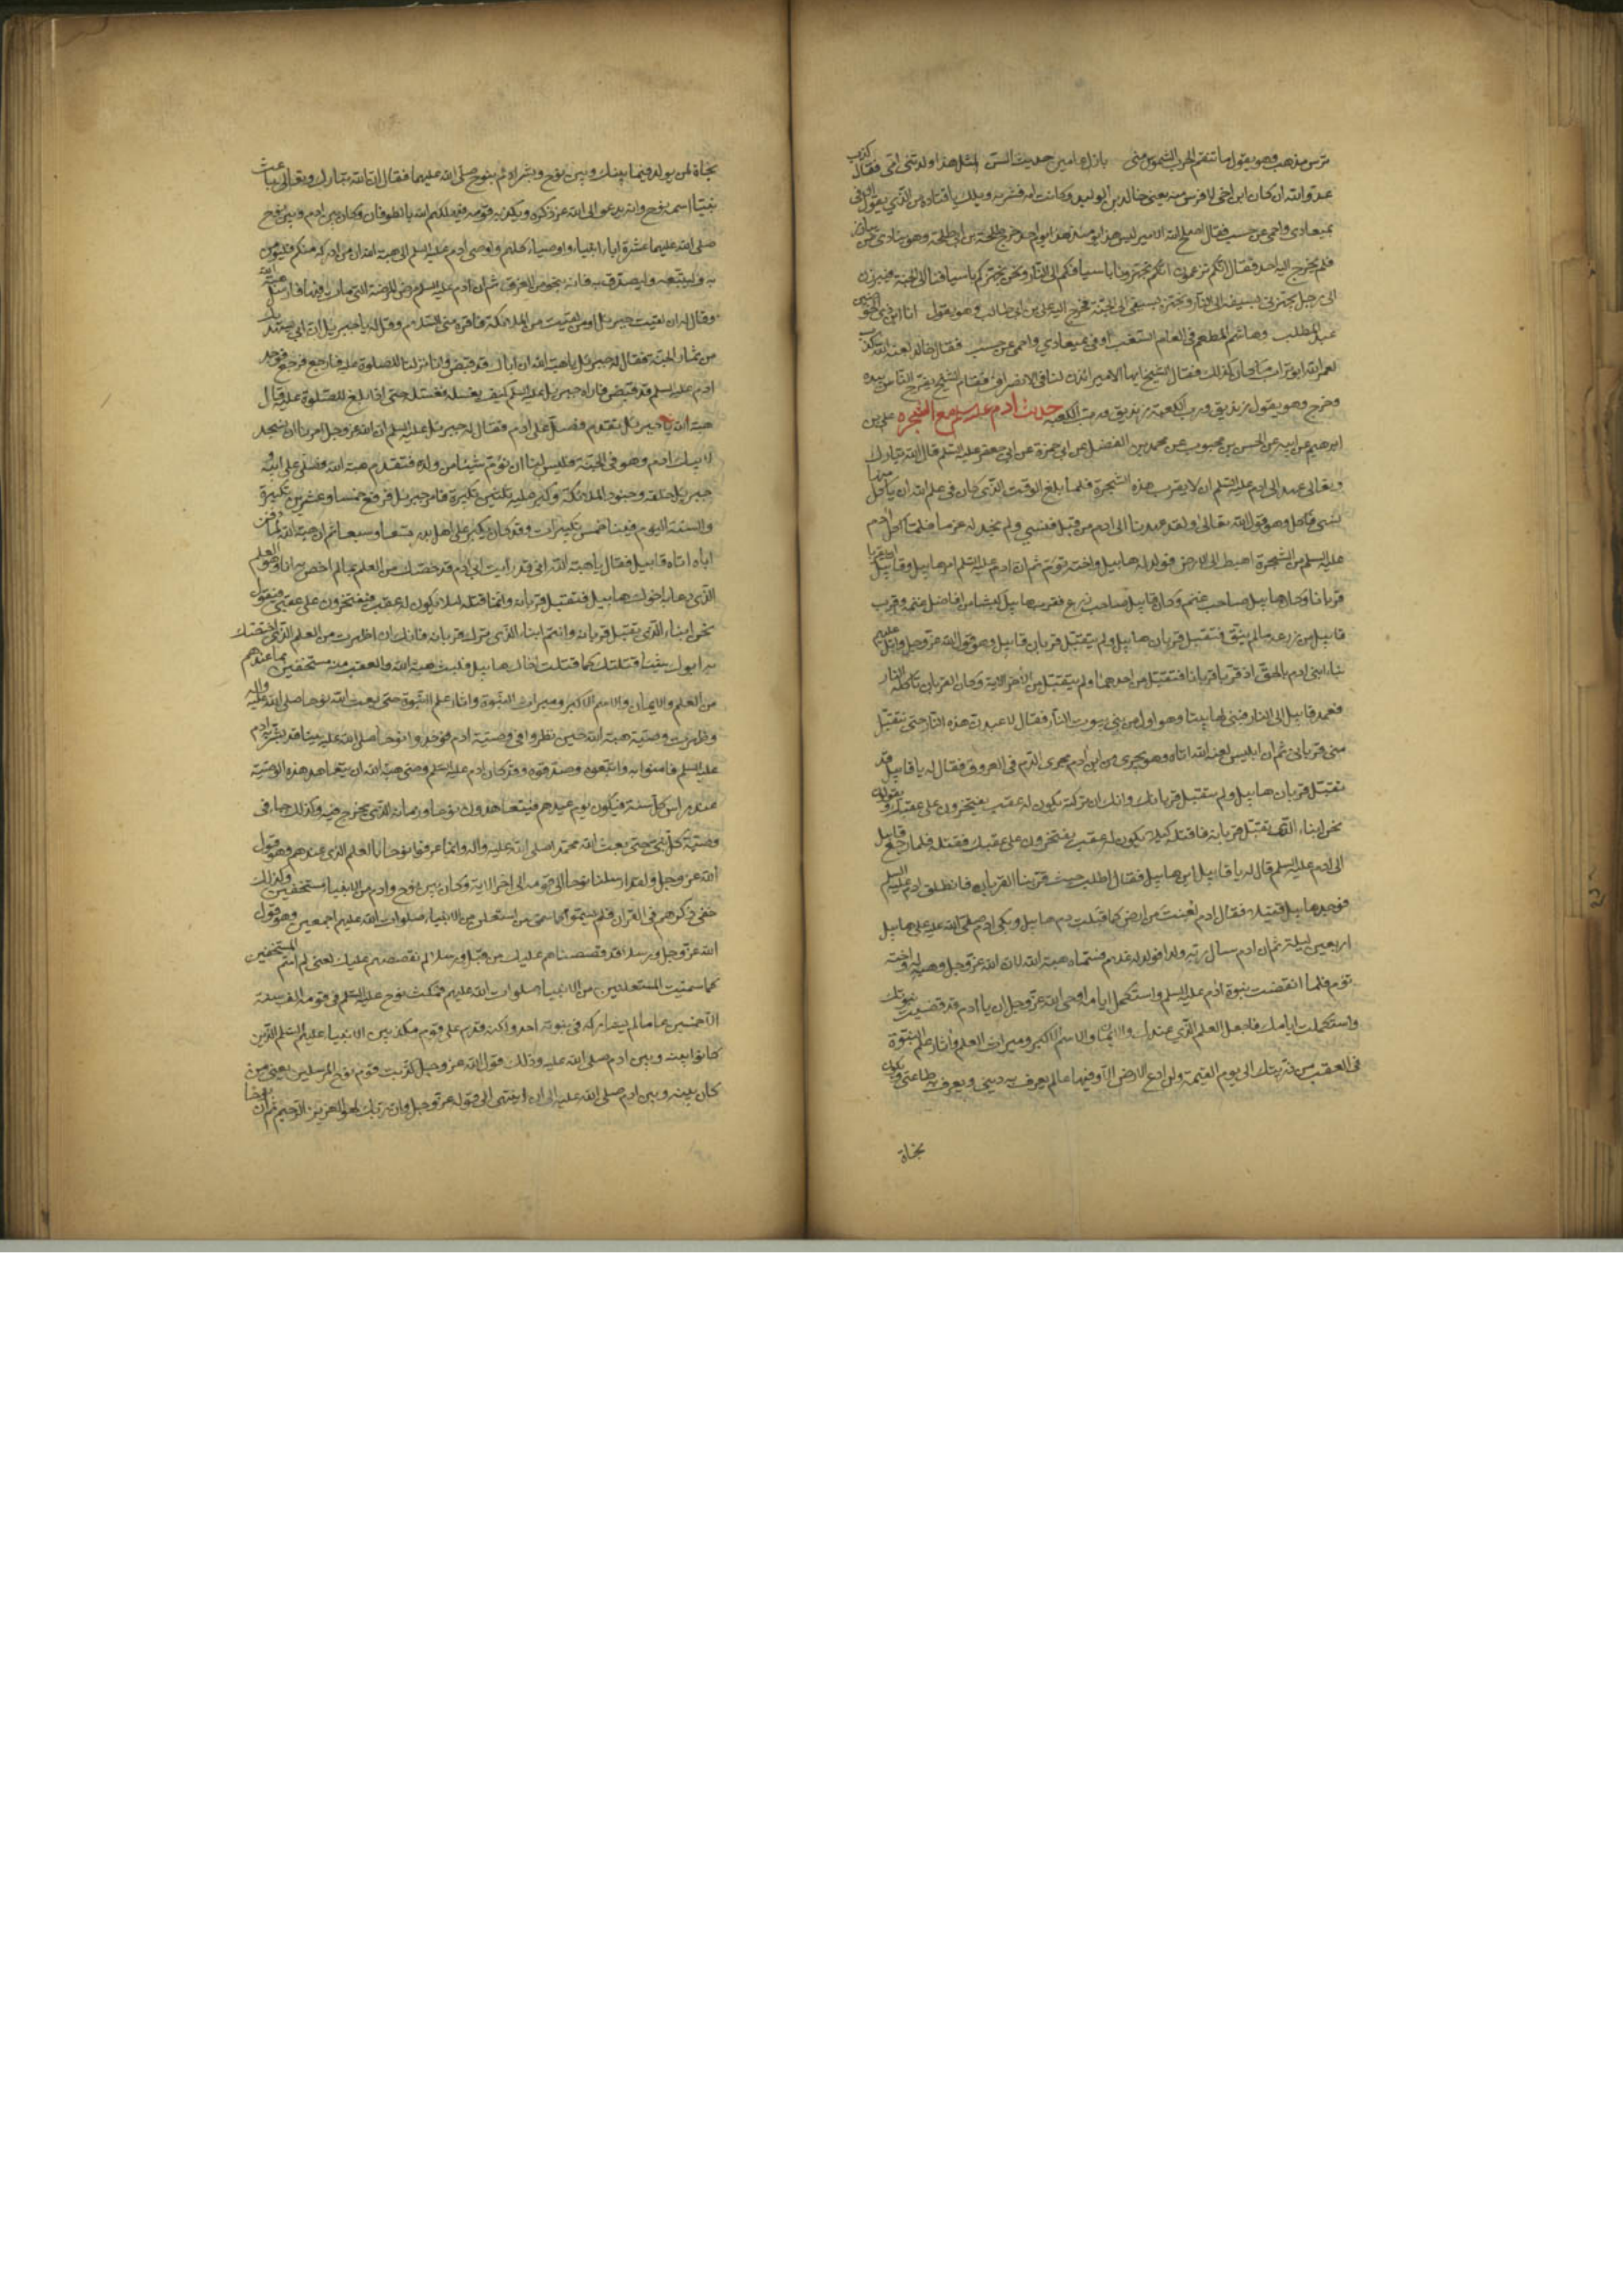 ترس مذهب وهو يقول ما تنقم الحرب الشموس مني بازل عامين حديث السن لمثل هذا ولدتني امي فقال كذب
عدو الله ان كان ابن اخي لافرس منه يعني خالد بن الوليد وكانت امه قشرية ويلك يا قتادة من الذي يقول اوفي
بميعادي واحمي عن حسب فقال اصلح الله الامير ليس هذا يومئذ هذا يوم احد خرج طلحة بن ابي طلحة وهو ينادي من يبارز
فلم يخرج اليه احد فقال انكم تزعمون انكم تجهزونا باسيافكم الى النار ونحن نجهزكم باسيافنا الى الجنة فليبرزن
الى رجل يجهزني بسيفه الى النار واجهزه بسيفي الى الجنة فخرج اليه علي بن ابي طالب وهو يقول انا ابن ذي الحوضين
عبد المطلب وهاشم المطعم في العام السغب اوفي بميعادي واحمي عن حسب فقال خالد لعنه الله كذب
لعمر الله ابو تراب ما كان كذلك فقال الشيخ ايها الامير ائذن لنا في الانصراف فقام الشيخ يفرج الناس بيده
وخرج وهو يقول زنديق ورب الكعبة زنديق ورب الكعبة حديث ادم عليه السلم مع الشجره علي بن
ابرهيم عن ابيه عن الحسن بن محبوب عن محمد بن الفضيل عن ابي حمزة عن ابي جعفر عليه السلم قال ان الله تبارك
وتعالى عهد الى ادم عليه السلم ان لا يقرب هذه الشجرة فلما بلغ الوقت الذي كان في علم الله ان ياكل منها
نسي فاكل وهو قول الله تعالى ولقد عهدنا الى ادم من قبل فنسي ولم نجد له عزما فلما اكل ادم
عليه السلم من الشجرة اهبط الى الارض فولد له هابيل واخته توءم ثم ان ادم عليه السلم امر هابيل وقابيل ان يقربا
قربانا وكان هابيل صاحب غنم وكان قابيل صاحب زرع فقرب هابيل كبشا من افاضل غنمه وقرب
قابيل من زرعه ما لم ينق فتقبل قربان هابيل ولم يتقبل قربان قابيل وهو قول الله عز وجل واتل عليهم
نبا ابني ادم بالحق اذ قربا قربانا فتقبل من احدهما ولم يتقبل من الاخر الاية وكان القربان تاكله النار
فعمد قابيل الى النار فبنى لها بيتا وهو اول من بنى بيوت النار فقال لاعبدن هذه النار حتى تتقبل
مني قرباني ثم ان ابليس لعنه الله اتاه وهو يجري من ابن ادم مجرى الدم في العروق فقال له يا قابيل قد
تقبل قربان هابيل ولم يتقبل قربانك وانك ان تركته يكون له عقب يفتخرون على عقبك ويقولون
نحن ابناء الذي تقبل قربانه فاقتله كيلا يكون له عقب يفتخرون على عقبك فقتله فلما رجع قابيل
الى ادم عليه السلم قال له يا قابيل اين هابيل فقال اطلبه حيث قربنا القربان فانطلق ادم عليه السلم
فوجد هابيل قتيلا فقال ادم لعنت من ارض كما قبلت دم هابيل وبكى ادم صلى الله عليه على هابيل
اربعين ليلة ثم ان ادم سال ربه ولدا فولد له غلام فسماه هبة الله لان الله عز وجل وهبه له واخته
توءم فلما انقضت نبوة ادم عليه السلم واستكمل ايامه اوحى الله عز وجل ان يا ادم قد قضيت نبوتك
واستكملت ايامك فاجعل العلم الذي عندك والايمان والاسم الاكبر وميراث العلم واثار علم النبوة
في العقب من ذريتك الى يوم القيمة ولن ادع الارض الا وفيها عالم يعرف به ديني ويعرف به طاعتي ويكون
نجاة
نجاة لمن يولد فيما بينك وبين نوح وبشر ادم بنوح صلى الله عليهما فقال ان الله تبارك وتعالى باعث
نبيا اسمه نوح وانه يدعو الى الله عز ذكره ويكذبه قومه فيهلكهم الله بالطوفان وكان بين ادم وبين نوح
صلى الله عليهما عشرة اباء انبياء واوصياء كلهم واوصى ادم عليه السلم الى هبة الله ان من ادركه منكم فليومن
به وليتبعه وليصدق به فانه ينجو من الغرق ثم ان ادم عليه السلم مرض المرضة التي مات فيها فارسل هبة الله
وقال له ان لقيت جبرئيل او من لقيت من الملائكة فاقره مني السلام وقل له يا جبرئيل ان ابي يستهديك
من ثمار الجنة فقال له جبرئيل يا هبة الله ان اباك قد قبض وانا نزلنا للصلوة عليه فارجع فرجع فوجد
ادم عليه السلم قد قبض فاراه جبرئيل عليه السلم كيف يغسله فغسله حتى اذا بلغ للصلوة عليه قال
هبة الله يا جبرئيل تقدم فصل على ادم فقال له جبرئيل عليه السلم ان الله عز وجل امرنا ان نسجد
لابيك ادم وهو في الجنة فليس لنا ان نؤم شيئا من ولده فتقدم هبة الله فصلى على ابيه و
جبرئيل خلفه وجنود الملائكة وكبر عليه ثلثين تكبيرة فامر جبرئيل فرفع خمسا وعشرين تكبيرة
والسنة اليوم فينا خمس تكبيرات وقد كان يكبر على اهل بدر تسعا وسبعا ثم ان هبة الله لما دفن
اباه اتاه قابيل فقال يا هبة الله اني قد رايت ابي ادم قد خصك من العلم بما لم اخص به انا وهو العلم
الذي دعا به اخوك هابيل فتقبل قربانه وانما قتلته لكيلا يكون له عقب فيفتخرون على عقبي فيقولون
نحن ابناء الذي تقبل قربانه وانتم ابناء الذي ترك قربانه فانك ان اظهرت من العلم الذي اختصك
به ابوك شيئا قتلتك كما قتلت اخاك هابيل فلبث هبة الله والعقب منه مستخفين بما عندهم
من العلم والايمان والاسم الاكبر وميراث النبوة واثار علم النبوة حتى بعث الله نوحا صلى الله عليه واله
وظهرت وصية هبة الله حين نظروا في وصية ادم فوجدوا نوحا صلى الله عليه نبيا قد بشر به ادم
عليه السلم فامنوا به واتبعوه وصدقوه وقد كان ادم عليه السلم وصى هبة الله ان يتعاهد هذه الوصية
عند راس كل سنة فيكون يوم عيدهم فيتعاهدون نوحا وزمانه الذي يخرج فيه وكذلك جاء في
وصية كل نبي حتى بعث الله محمدا صلى الله عليه واله وانما عرفوا نوحا بالعلم الذي عندهم وهو قول
الله عز وجل ولقد ارسلنا نوحا الى قومه الى اخر الاية وكان بين نوح وادم من الانبياء مستخفين ولذلك
خفي ذكرهم في القران فلم يسموا كما سمي من استعلن من الانبياء صلوات الله عليهم اجمعين وهو قول
الله عز وجل ورسلا قد قصصناهم عليك من قبل ورسلا لم نقصصهم عليك يعني لم اسم المستخفين
كما سميت المستعلنين من الانبياء صلوات الله عليهم فمكث نوح عليه السلم في قومه الف سنة
الا خمسين عاما لم يشاركه في نبوته احد ولكنه قدم على قوم مكذبين الانبياء عليهم السلم الذين
كانوا بينه وبين ادم صلى الله عليه وذلك قول الله عز وجل كذبت قوم نوح المرسلين يعني من
كان بينه وبين ادم صلى الله عليه الى ان انتهى الى قوله عز وجل وان ربك لهو العزيز الرحيم ثم ان نوحا